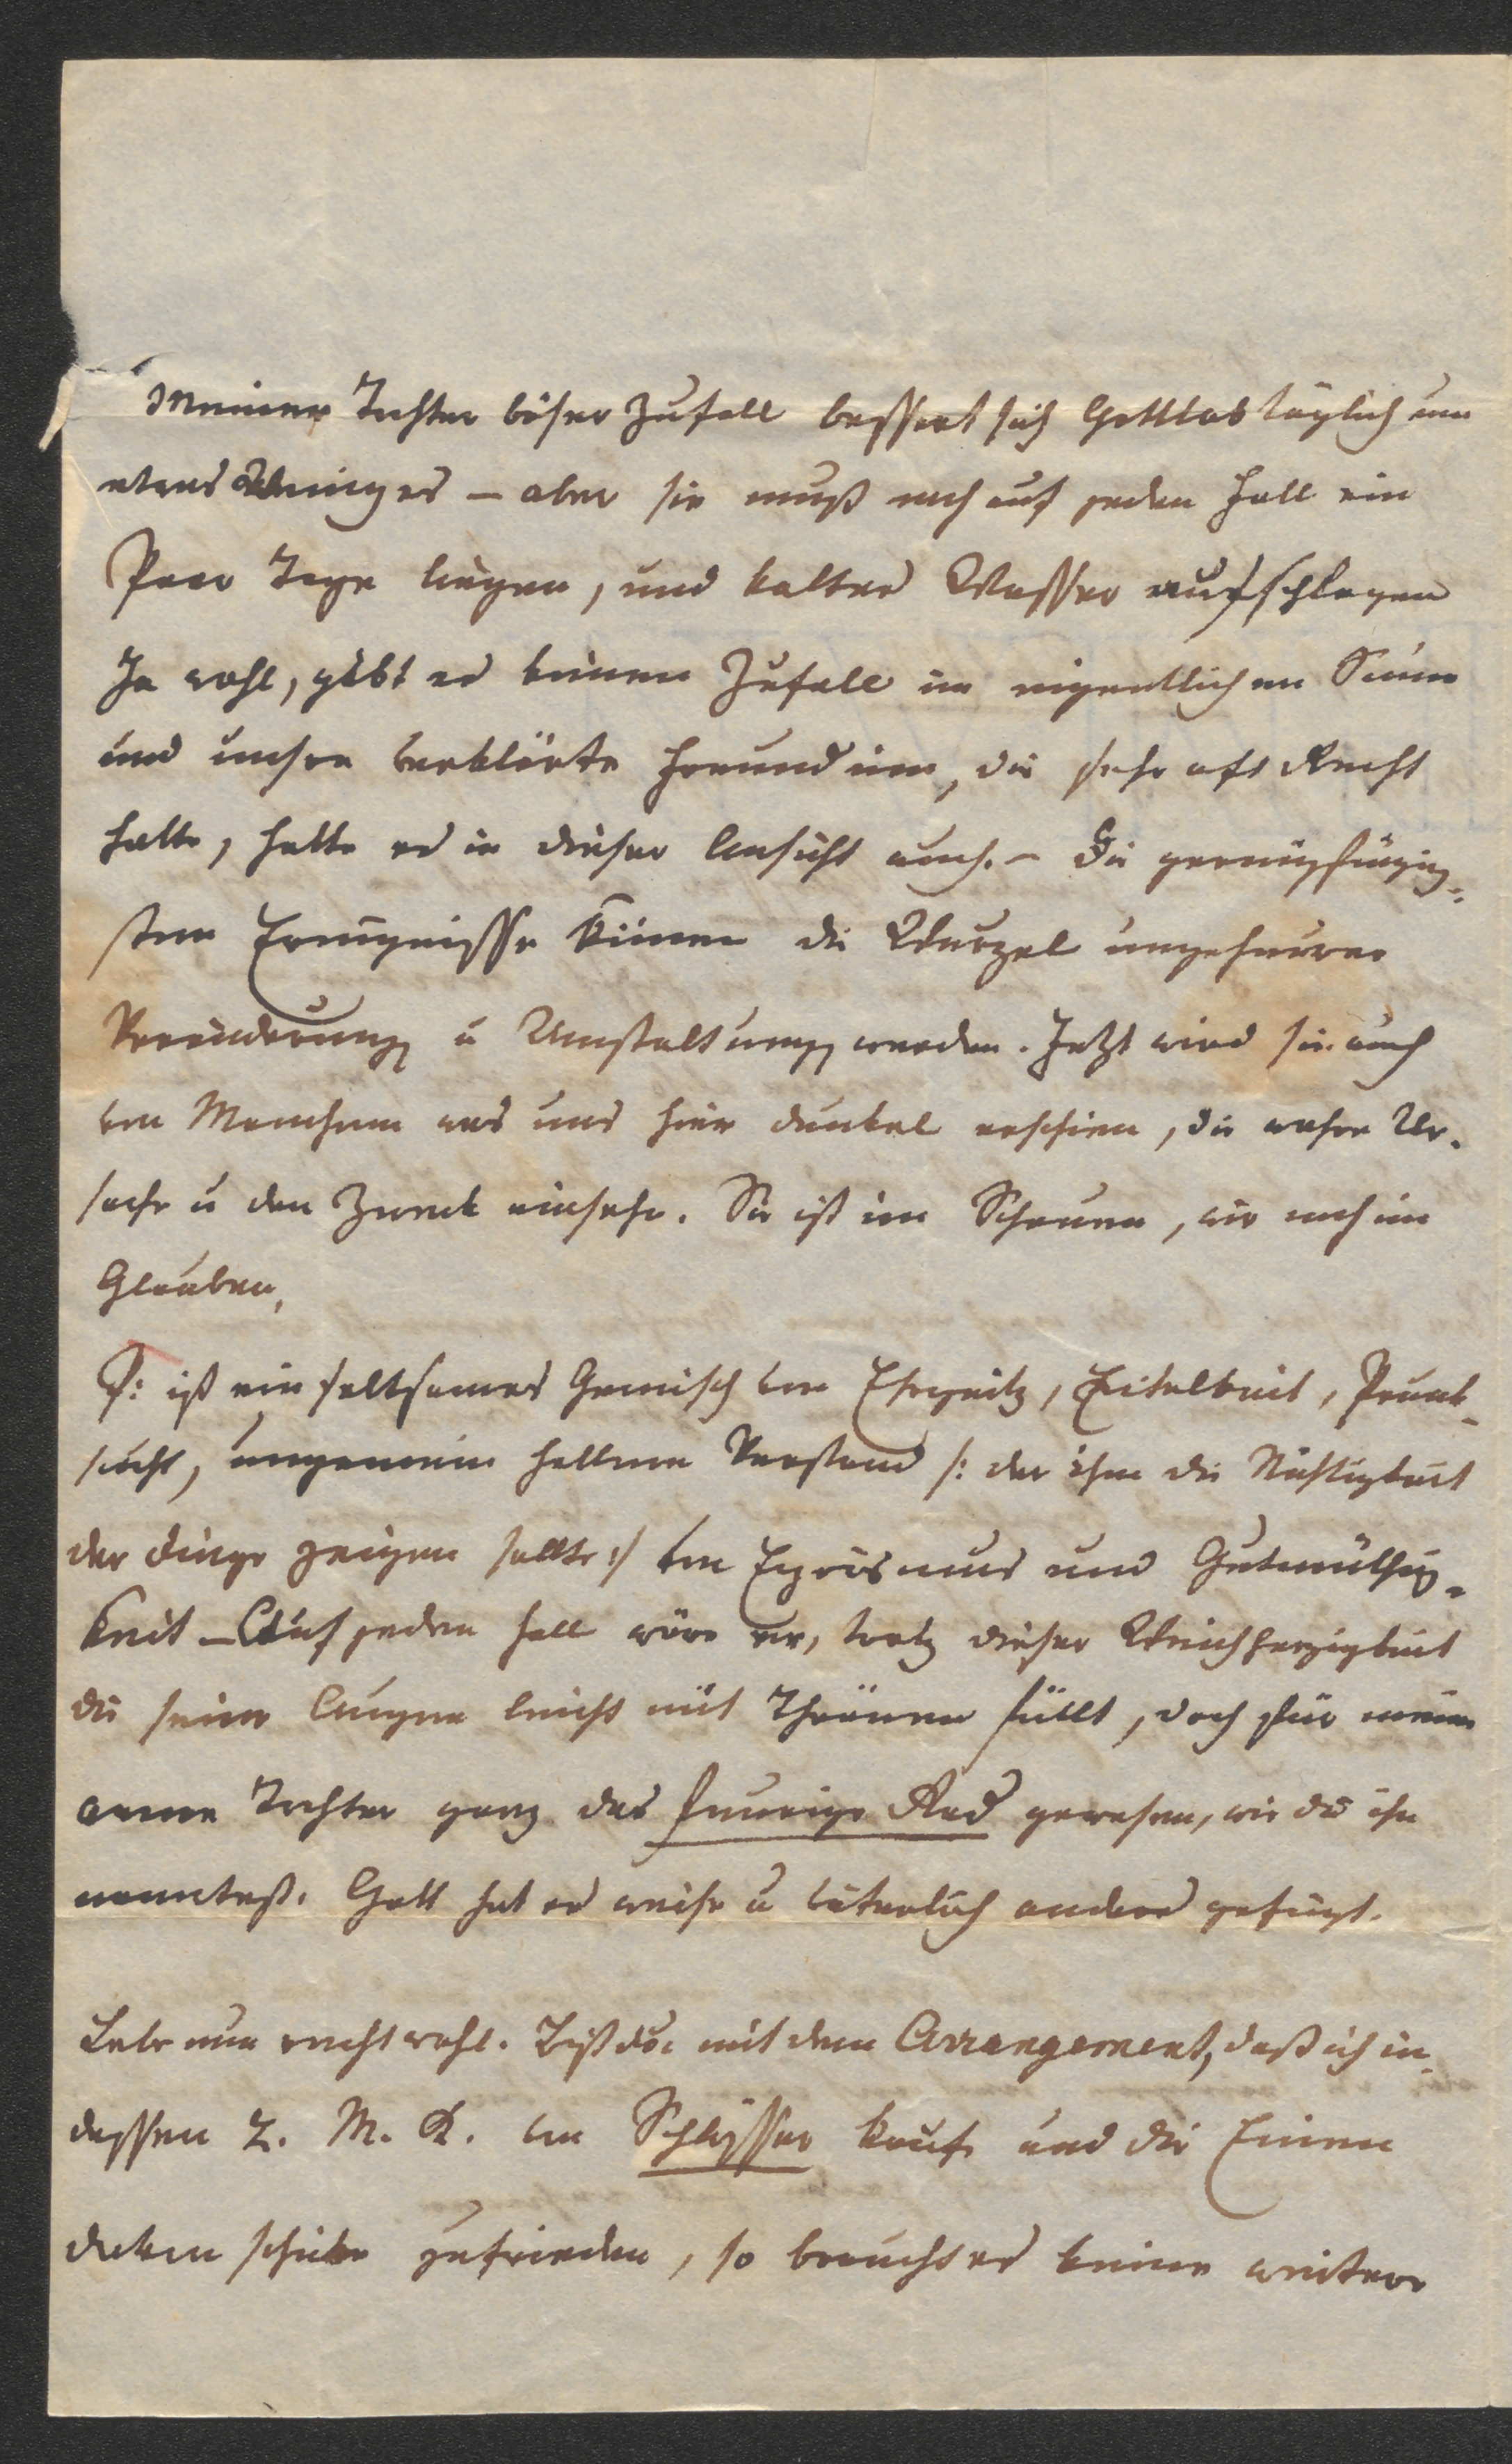 Meiner Tochter böser Zufall bessert sich Gottlob täglich um
etwas Weniges – aber sie muß noch auf jeden Fall ein
Paar Tage liegen, und kaltes Wasser aufschlagen
Ja wohl, gibt es keinen Zufall im eigentlichen Sinne
und unsre verklärte Freundinn, die sehr oft Recht
hatte, hatte es in dieser Ansicht auch. – Die geringfügig-
sten Ereignisse können die Wurzel ungeheurer
Veränderung u Umstaltung werden. Jetzt wird sie auch
von Manchem was uns hier dunkel erschien, die wahre Ur-
sache u den Zweck einsehn. Sie ist im Schauen, wir noch im
Glauben,
P: ist ein seltsames Gemisch von Ehrgeitz, Eitelkeit, Prunk-
sucht, ungemein hellem Verstand /: der ihm die Nichtigkeit
der Dinge zeigen sollte :/ von Egoismus und Gutmüthig-
keit – Auf jeden Fall wäre er, trotz dieser Weichherzigkeit
die seine Augen leicht mit Thränen füllt, doch für meine
arme Tochter ganz das feurige Rad gewesen, wie du ihn
nanntest. Gott hat es weise u väterlich anders gefügt.
Lebe nun recht wohl. Bist du mit dem Arrangement, daß ich in-
dessen 2. M. K. von Schlysser kaufe und die Einen
decken schicke zufrieden, so braucht es keine weitere